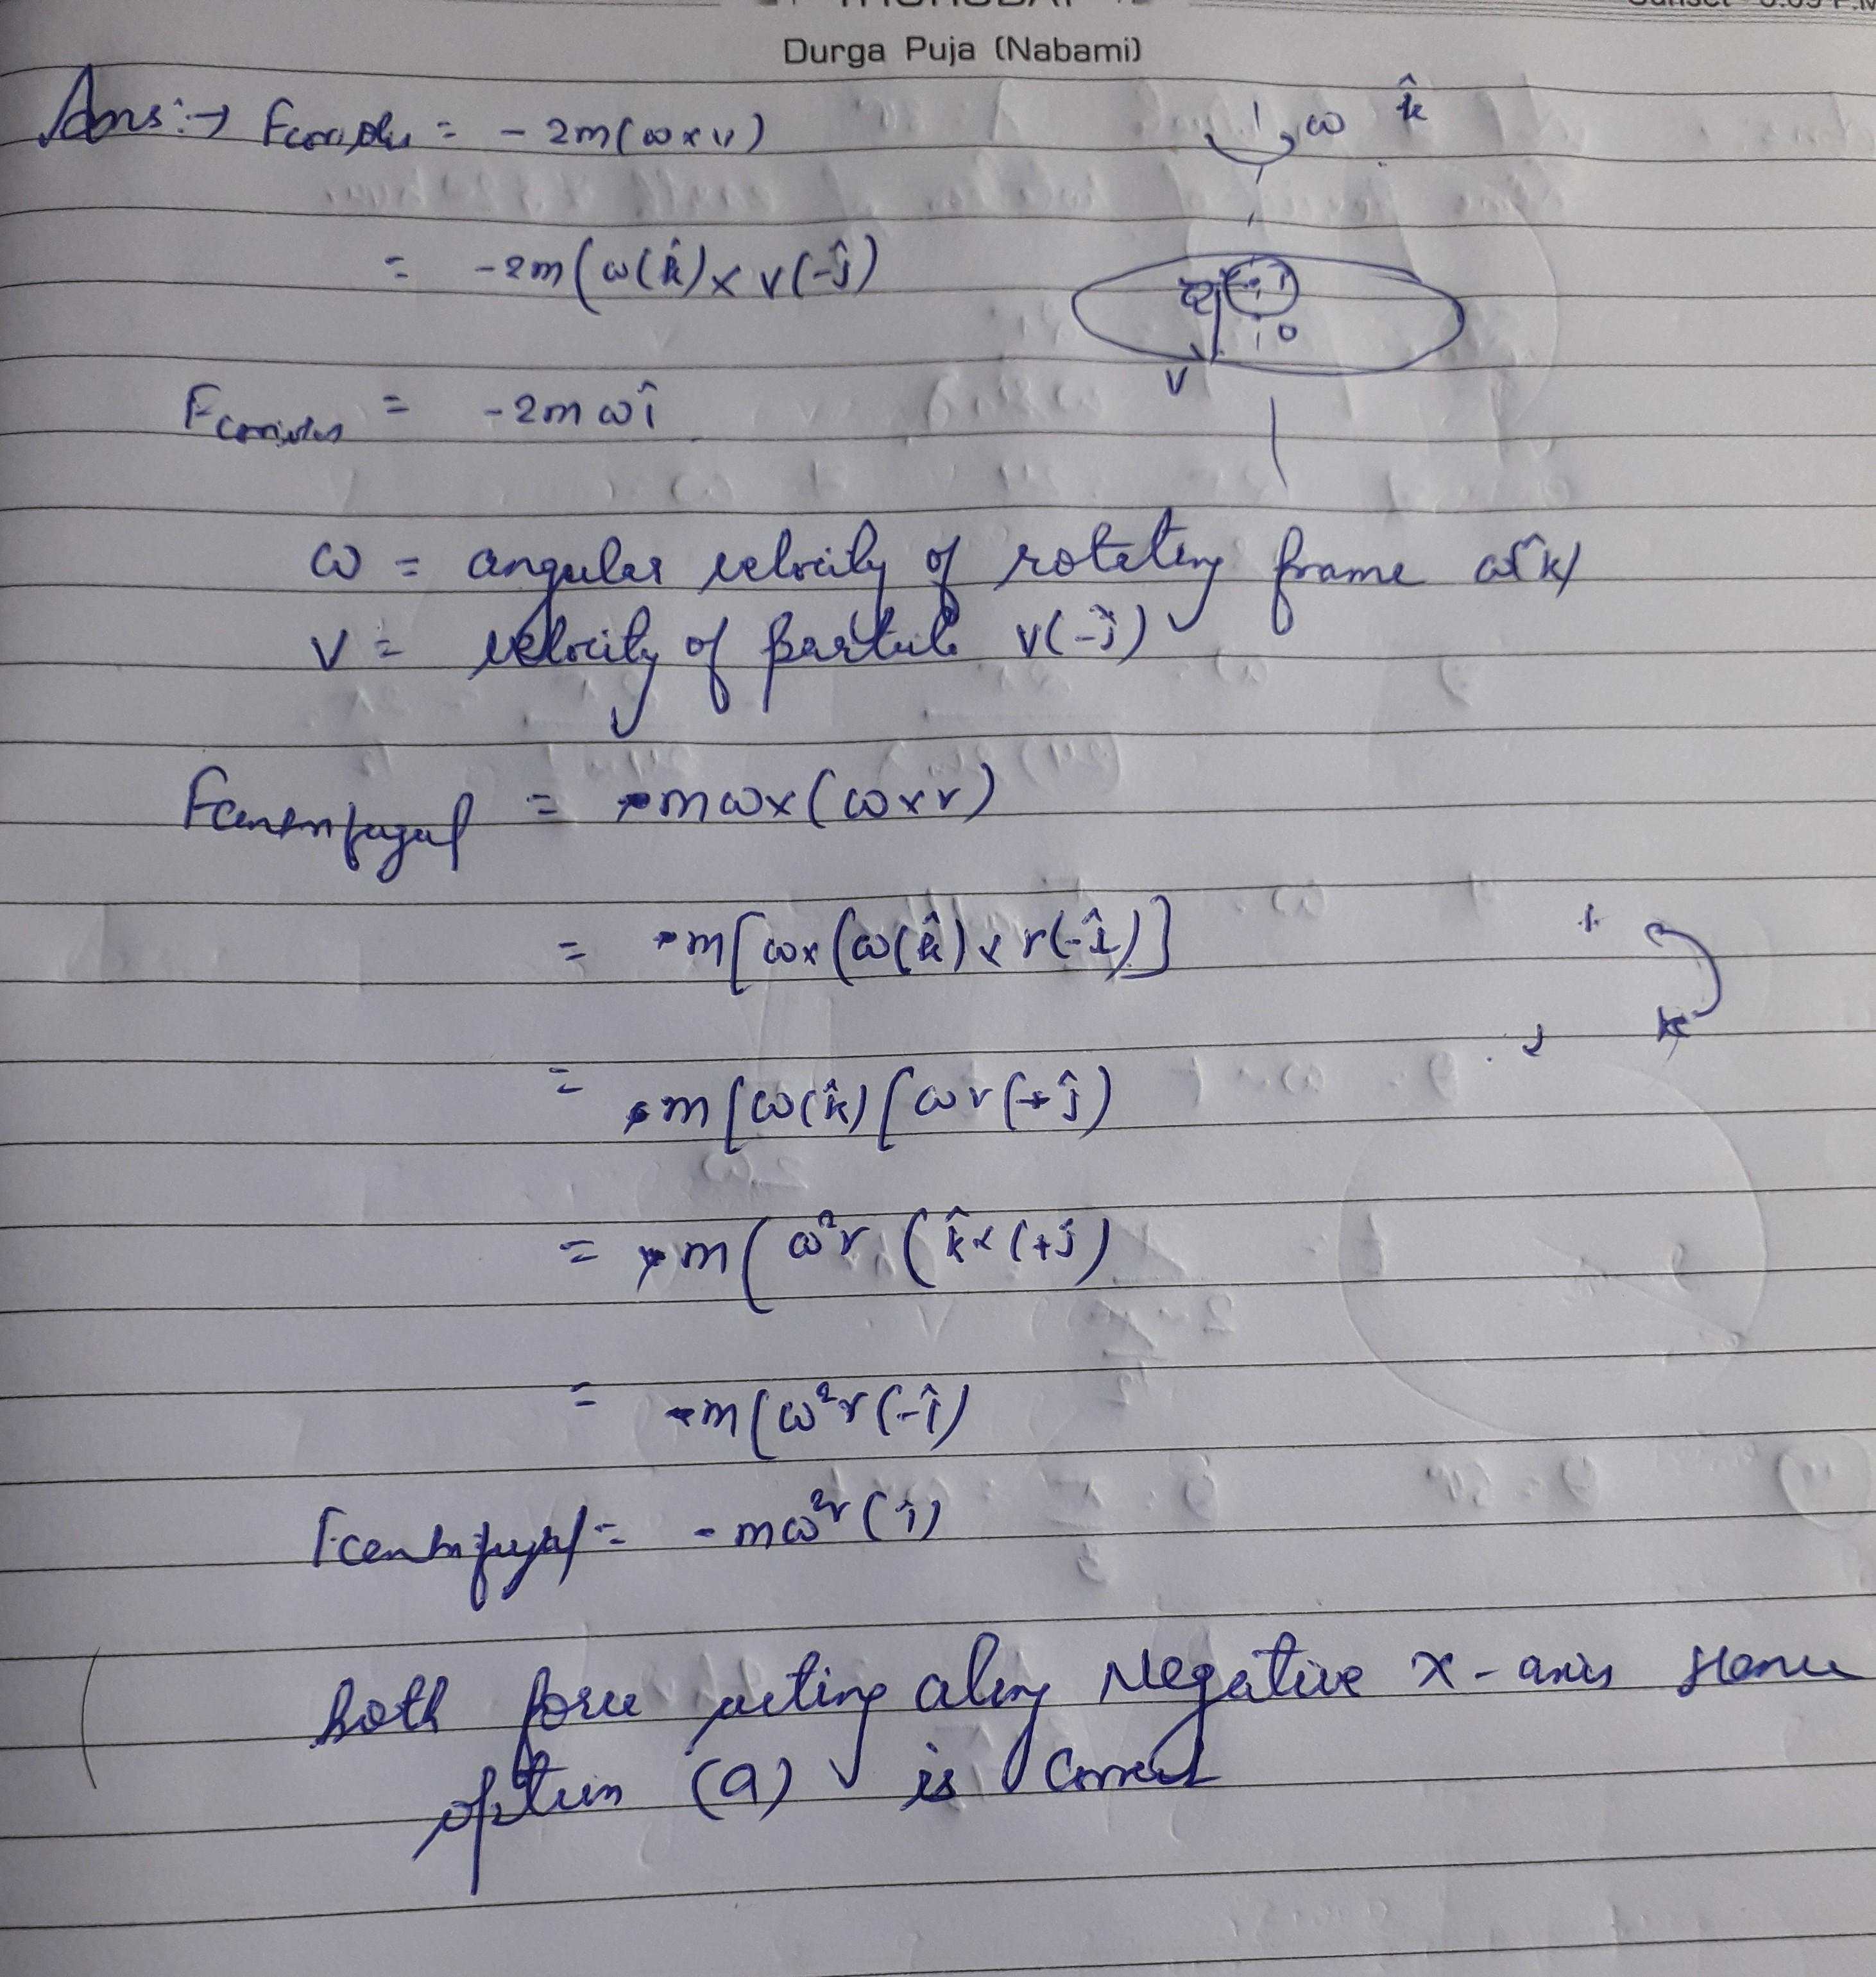 Durga Puja (Nabami)
Ans:→ Fcoriolis = - 2m(ω×v)
ω k̂
= -2m(ω(k̂)×v(-ĵ)
o
v
Fcoriolis = -2mωî
ω = angular velocity of rotating frame ω(k̂)
v = velocity of particle v(-ĵ)
Fcentrifugal = mω×(ω×r)
= m[ω×(ω(k̂)×r(-î)]
= m[ω(k̂)[ωr(+ĵ)
j k
= m(ω²r(k̂×(+ĵ)
= m(ω²r(-î)
Fcentrifugal = -mω²r(î)
both force acting along Negative x-axis Hence
option (a) is correct